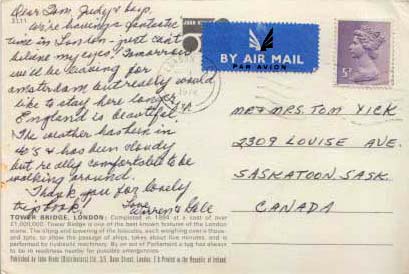 Dear Tom, Judy &
We're having a fantastic
time in London - just can't
believe my eyes. Tomorrow
we'll be leaving for
Amsterdam but really would
like to stay here longer.
England is beautiful,
The weather has been in
40's & has been cloudy
but really comfortable to be
walking around.
Thank you for lovely
trip book.
Love
Warren & Gale
TOWER BRIDGE, LONDON: Completed in 1894 at a cost of over
£1,000,000. Tower Bridge is one of the best known features of the London
scene. The lifting and lowering of the bascules, each weighing over a thous-
and tons, to allow the passage of ships, takes about five minutes, and is
performed by hydraulic machinery. By an act of Parliament a tug has always
to be in readiness nearby for possible emergencies.
Published by John Hinde (Distributors) Ltd., Dean Street, London. Printed in the Republic of Ireland.
BY AIR MAIL
PAR AVION
MR & MRS. TOM YICK
2309 LOUISE AVE.
SASKATOON SASK.
CANADA